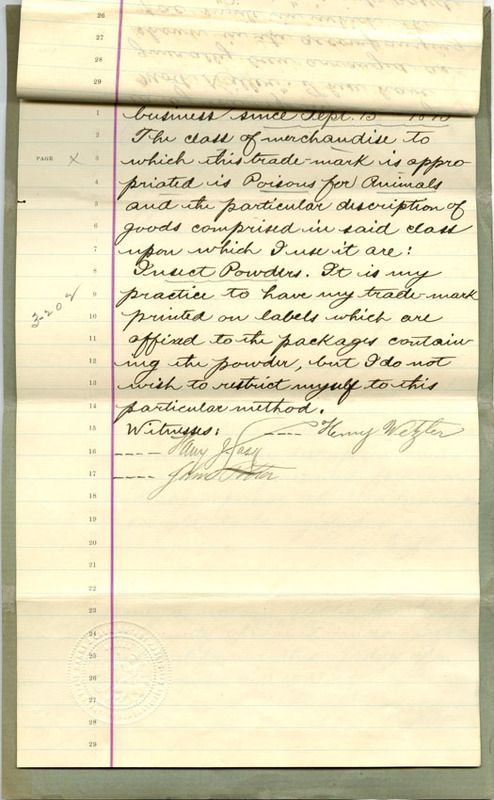 26
27
28
29
1 business since Sept. 15
2 The class of merchandise to
PAGE X 3 which this trade-mark is appro-
4 priated is Poisons for Animals
5 and the particular description of
6 goods comprised in said class
7 upon which I use it are:
8 Insect Powders. It is my
9 practice to have my trade-mark
3-202
10 printed on labels which are
11 affixed to the packages contain-
12 ing the powder, but I do not
13 wish to restrict myself to this
14 particular method.
15 Witnesses: ---- Henry Wetzler
16 ----
17 ----
18
19
20
21
22
23
24
25
26
27
28
29